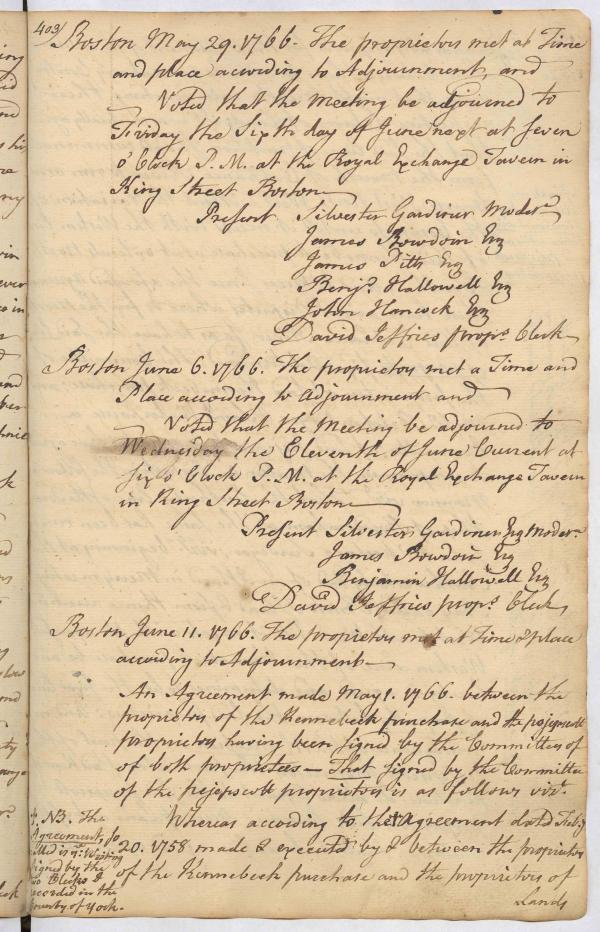 403
Boston May 29. 1766. The proprietors met at Time
and place according to Adjournment, and
Voted that the meeting be adjourned to
Friday the Sixth day of June next at Seven
o'Clock P.M. at the Royal Exchange Tavern in
King Street Boston
Present Silvester Gardiner Moder.r
James Bowdoin Esq
James Pitts Esq
Benj.a Hallowell Esq
John Hancock Esq
David Jeffries prop.s Clerk
Boston June 6. 1766. The proprietors met a Time and
Place according to adjournment and
Voted that the Meeting be adjourned to
Wednesday the Eleventh of June Current at
Six o'Clock P.M. at the Royal Exchange Tavern
in King Street Boston
Present Silvester Gardiner Esq Moder.r
James Bowdoin Esq
Benjamin Hallowell Esq
David Jeffries prop.s Clerk
Boston June 11. 1766. The proprietors met at Time & place
according to Adjournment
An Agreement made May 1. 1766. between the
proprietors of the Kennebeck purchase and the pejepscott
proprietors having been signed by the Committees of
of both proprietees — That signed by the Committee
of the pejepscott proprietors is as follows viz.t
Whereas according to the Agreement dated
20. 1758 made & executed by & between the proprietors
of the Kennebeck purchase and the proprietors of
Lands
NB. The
Agreement so
is
signed by the
two Clerks &
recorded in the
County of York.